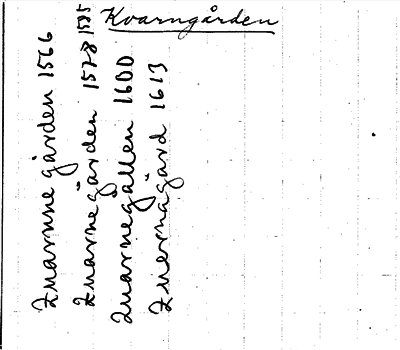 Kvarngården
Quarnne gården 1566
Quarnegården 1578 1585
Quarnegallen 1600
Quernagård 1613